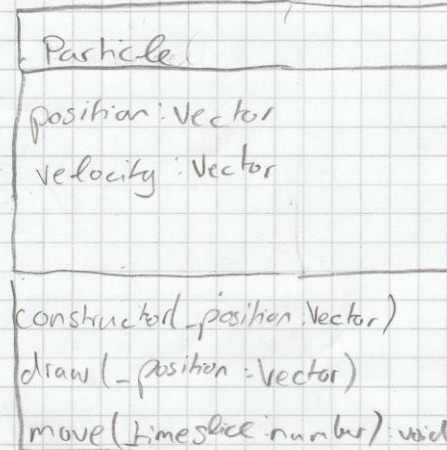 Particle
position: Vector
velocity: Vector
constructor(_position: Vector)
draw(_position: Vector)
move(_timeslice: number): void